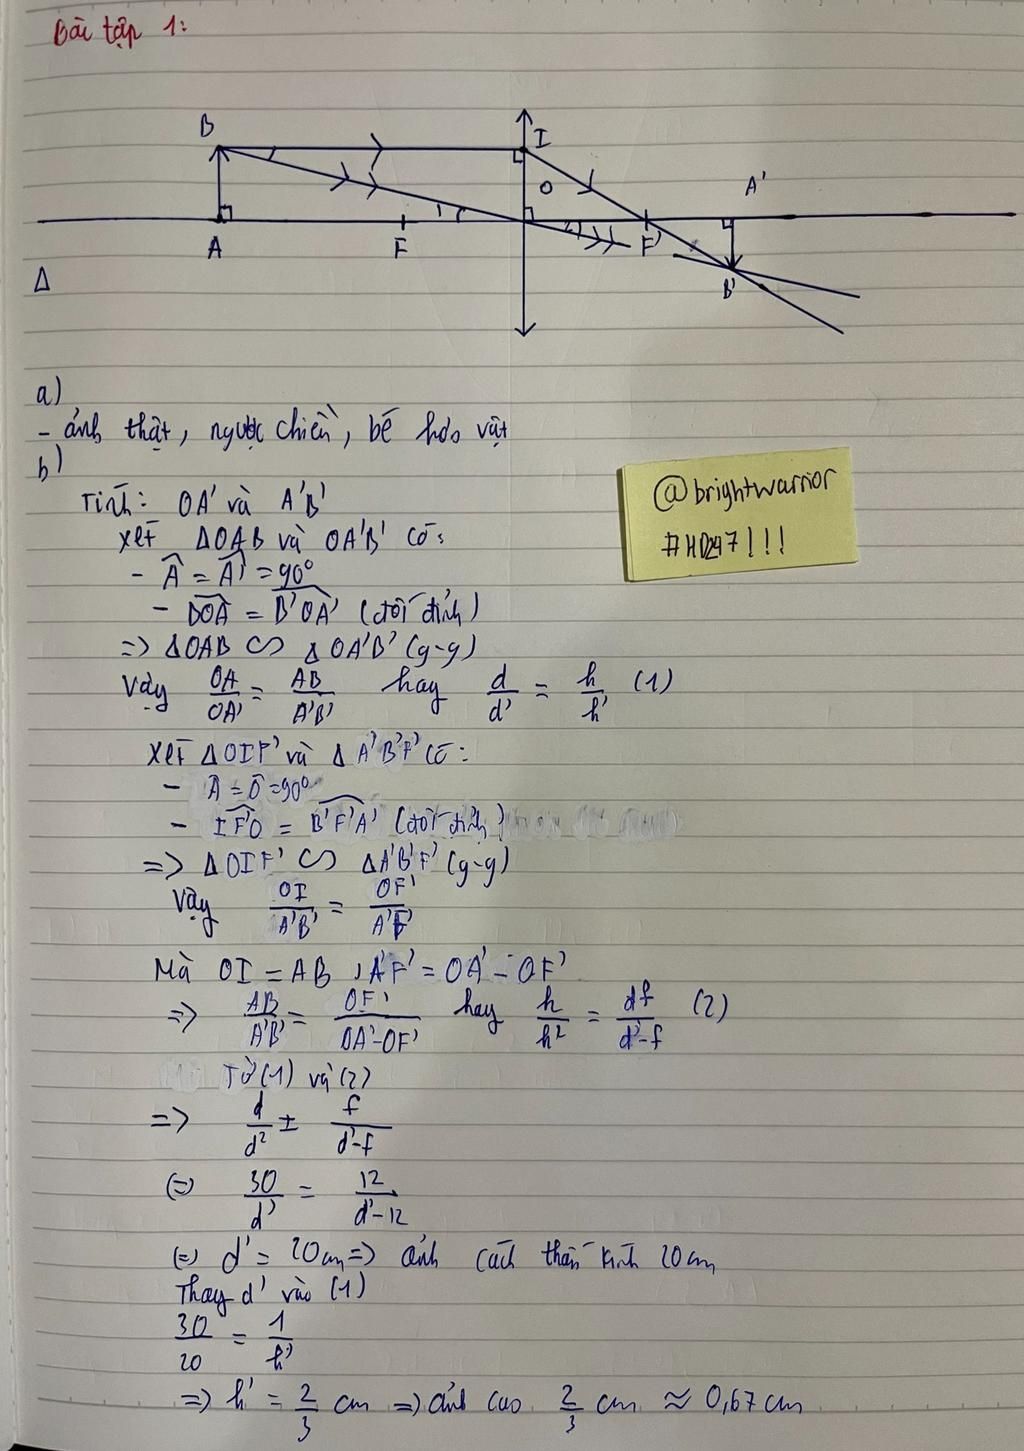 Bài tập 1:
B
I
O
A'
A
F
F'
B'
Δ
a)
- ảnh thật, ngược chiều, bé hơn vật
b)
Tính: OA' và A'B'
xét ΔOAB và OA'B' có:
- Â = Â' = 90°
- BOA = B'OA' (đối đỉnh)
=> ΔOAB ∽ ΔOA'B' (g-g)
Vậy OA/OA' = AB/A'B' hay d/d' = h/h' (1)
Xét ΔOIF' và ΔA'B'F' có:
- Â = Ô = 90°
- IF'O = B'F'A' (đối đỉnh)
=> ΔOIF' ∽ ΔA'B'F' (g-g)
Vậy OI/A'B' = OF'/A'F'
Mà OI = AB, A'F' = OA' - OF'
=> AB/A'B' = OF'/OA'-OF' hay h/h² = df/d'-f (2)
Từ (1) và (2)
=> d/d² = f/d'-f
(=) 30/d' = 12/d'-12
(=) d' = 20cm => ảnh cách thấu kính 20cm
Thay d' vào (1)
30/20 = 1/h'
=> h' = 2/3 cm => ảnh cao 2/3 cm ≈ 0,67cm
@brightwarrior
#HD247!!!